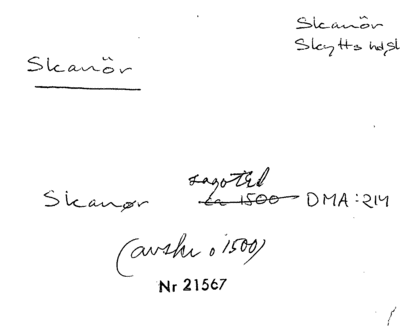 Skanör
Skytts hd,sk
Skanör
sagotid
Skanør ca 1500 DMA:214
(avskr o 1500)
Nr 21567